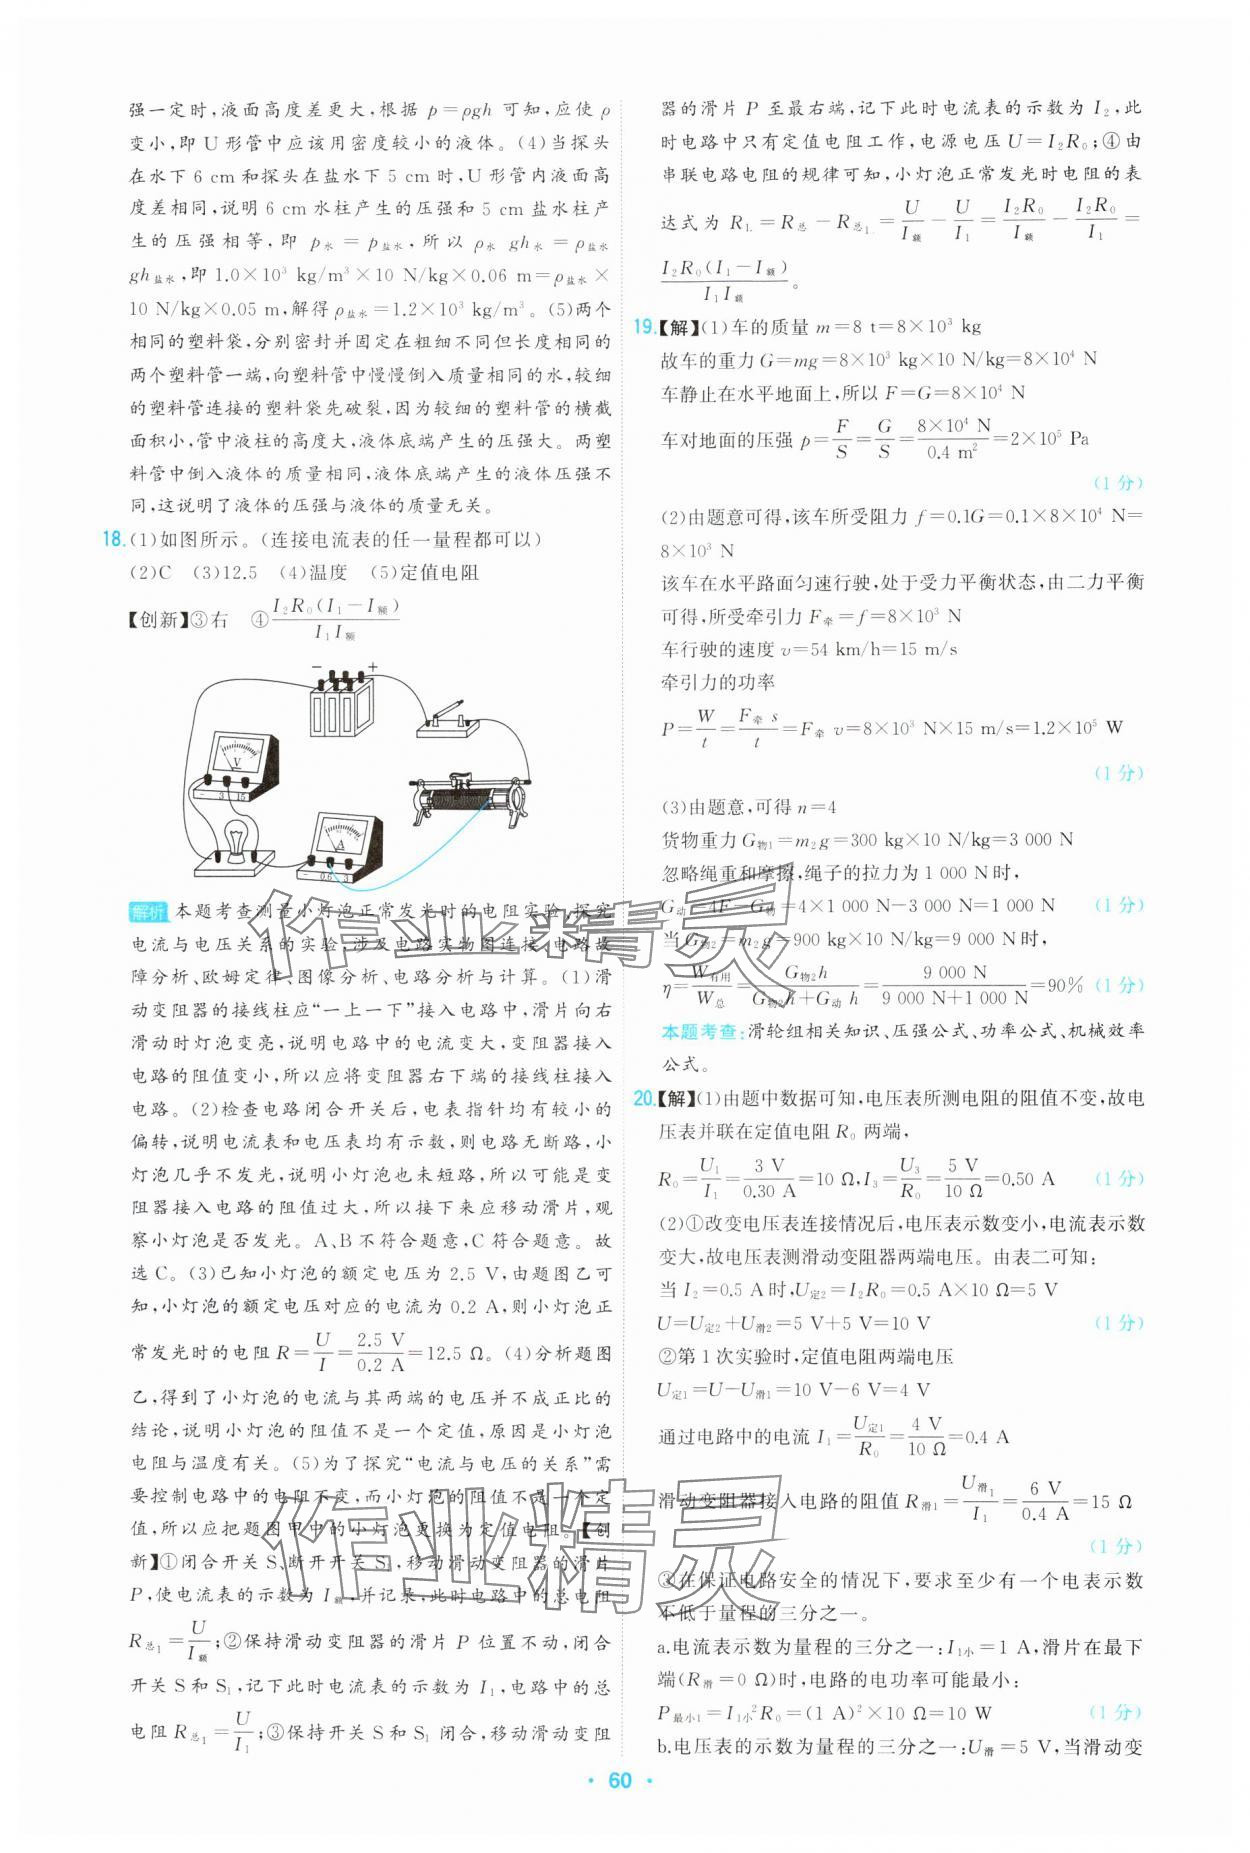 强一定时,液面高度差更大,根据 p=ρgh 可知,应使 ρ
变小,即 U 形管中应该用密度较小的液体。(4)当探头
在水下 6 cm 和探头在盐水下 5 cm 时,U 形管内液面高
度差相同,说明 6 cm 水柱产生的压强和 5 cm 盐水柱产
生的压强相等,即 p水=p盐水,所以 ρ水 gh水=ρ盐水
gh盐水,即 1.0×10³ kg/m³×10 N/kg×0.06 m=ρ盐水×
10 N/kg×0.05 m,解得 ρ盐水=1.2×10³ kg/m³。(5)两个
相同的塑料袋,分别密封并固定在粗细不同但长度相同的
两个塑料管一端,向塑料管中慢慢倒入质量相同的水,较细
的塑料管连接的塑料袋先破裂,因为较细的塑料管的横截
面积小,管中液柱的高度大,液体底端产生的压强大。两塑
料管中倒入液体的质量相同,液体底端产生的液体压强不
同,这说明了液体的压强与液体的质量无关。
18.(1)如图所示。(连接电流表的任一量程都可以)
(2)C (3)12.5 (4)温度 (5)定值电阻
【创新】③右 ④I₂R₀(I₁-I额)/(I₁I额)
- +
V
- 3 15
A
- 0.6 3
解析 本题考查测量小灯泡正常发光时的电阻实验,探究
电流与电压关系的实验,涉及电路实物图连接、电路故
障分析、欧姆定律、图像分析、电路分析与计算。(1)滑
动变阻器的接线柱应“一上一下”接入电路中,滑片向右
滑动时灯泡变亮,说明电路中的电流变大,变阻器接入
电路的阻值变小,所以应将变阻器右下端的接线柱接入
电路。(2)检查电路闭合开关后,电表指针均有较小的
偏转,说明电流表和电压表均有示数,则电路无断路,小
灯泡几乎不发光,说明小灯泡也未短路,所以可能是变
阻器接入电路的阻值过大,所以接下来应移动滑片,观
察小灯泡是否发光。A、B 不符合题意,C 符合题意。故
选 C。(3)已知小灯泡的额定电压为 2.5 V,由题图乙可
知,小灯泡的额定电压对应的电流为 0.2 A,则小灯泡正
常发光时的电阻 R=U/I=2.5 V/0.2 A=12.5 Ω。(4)分析题图
乙,得到了小灯泡的电流与其两端的电压并不成正比的
结论,说明小灯泡的阻值不是一个定值,原因是小灯泡
电阻与温度有关。(5)为了探究“电流与电压的关系”需
要控制电路中的电阻不变,而小灯泡的阻值不是一个定
值,所以应把题图甲中的小灯泡更换为定值电阻。【创
新】①闭合开关 S、断开开关 S₁,移动滑动变阻器的滑片
P,使电流表的示数为 I额,并记录,此时电路中的总电阻
R总1=U/I额;②保持滑动变阻器的滑片 P 位置不动,闭合
开关 S 和 S₁,记下此时电流表的示数为 I₁,电路中的总
电阻 R总1=U/I₁;③保持开关 S 和 S₁ 闭合,移动滑动变阻
器的滑片 P 至最右端,记下此时电流表的示数为 I₂,此
时电路中只有定值电阻工作,电源电压 U=I₂R₀;④由
串联电路电阻的规律可知,小灯泡正常发光时电阻的表
达式为 RL=R总-R总1=U/I额-U/I₁=I₂R₀/I额-I₂R₀/I₁=
I₂R₀(I₁-I额)/(I₁I额)。
19.【解】(1)车的质量 m=8 t=8×10³ kg
故车的重力 G=mg=8×10³ kg×10 N/kg=8×10⁴ N
车静止在水平地面上,所以 F=G=8×10⁴ N
车对地面的压强 p=F/S=G/S=8×10⁴ N/0.4 m²=2×10⁵ Pa
(1 分)
(2)由题意可得,该车所受阻力 f=0.1G=0.1×8×10⁴ N=
8×10³ N
该车在水平路面匀速行驶,处于受力平衡状态,由二力平衡
可得,所受牵引力 F牵=f=8×10³ N
车行驶的速度 v=54 km/h=15 m/s
牵引力的功率
P=W/t=F牵 s/t=F牵 v=8×10³ N×15 m/s=1.2×10⁵ W
(1 分)
(3)由题意,可得 n=4
货物重力 G物1=m₂g=300 kg×10 N/kg=3 000 N
忽略绳重和摩擦,绳子的拉力为 1 000 N时,
G动=4F-G物=4×1 000 N-3 000 N=1 000 N (1 分)
当 G物2=m₂g=900 kg×10 N/kg=9 000 N时,
η=W有用/W总=G物2h/(G物2h+G动 h)=9 000 N/(9 000 N+1 000 N)=90% (1 分)
本题考查:滑轮组相关知识、压强公式、功率公式、机械效率
公式。
20.【解】(1)由题中数据可知,电压表所测电阻的阻值不变,故电
压表并联在定值电阻 R₀ 两端,
R₀=U₁/I₁=3 V/0.30 A=10 Ω,I₃=U₃/R₀=5 V/10 Ω=0.50 A (1 分)
(2)①改变电压表连接情况后,电压表示数变小,电流表示数
变大,故电压表测滑动变阻器两端电压。由表二可知:
当 I₂=0.5 A 时,U定2=I₂R₀=0.5 A×10 Ω=5 V
U=U定2+U滑2=5 V+5 V=10 V (1 分)
②第 1 次实验时,定值电阻两端电压
U定1=U-U滑1=10 V-6 V=4 V
通过电路中的电流 I₁=U定1/R₀=4 V/10 Ω=0.4 A
滑动变阻器接入电路的阻值 R滑1=U滑1/I₁=6 V/0.4 A=15 Ω
(1 分)
③在保证电路安全的情况下,要求至少有一个电表示数
不低于量程的三分之一。
a.电流表示数为量程的三分之一:I1小=1 A,滑片在最下
端(R滑=0 Ω)时,电路的电功率可能最小:
P最小1=I1小²R₀=(1 A)²×10 Ω=10 W (1 分)
b.电压表的示数为量程的三分之一:U滑=5 V,当滑动变
· 60 ·
作业精灵
作业精灵